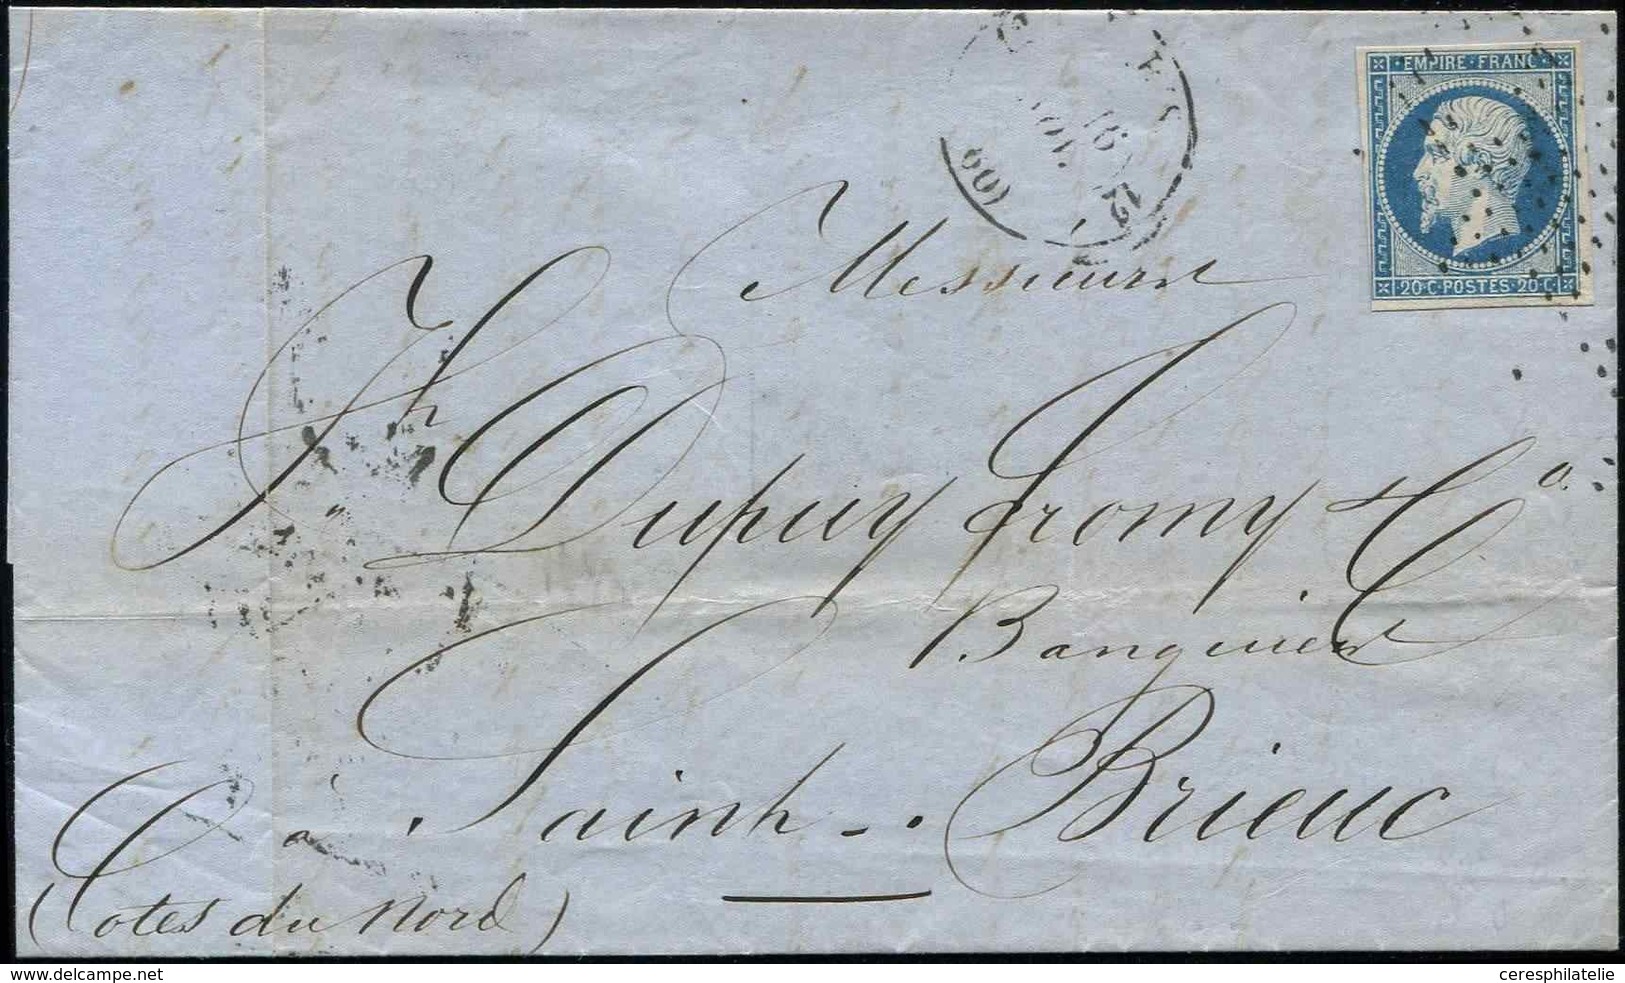 EMPIRE · FRANC ·
20·C·POSTES·20·C·
(60)
12
Messieurs
Jh Dupuy fromy & Ce
Banquiers
à Saint-Brieuc
(Cotes du Nord)
www.delcampe.net
ceresphilatelie